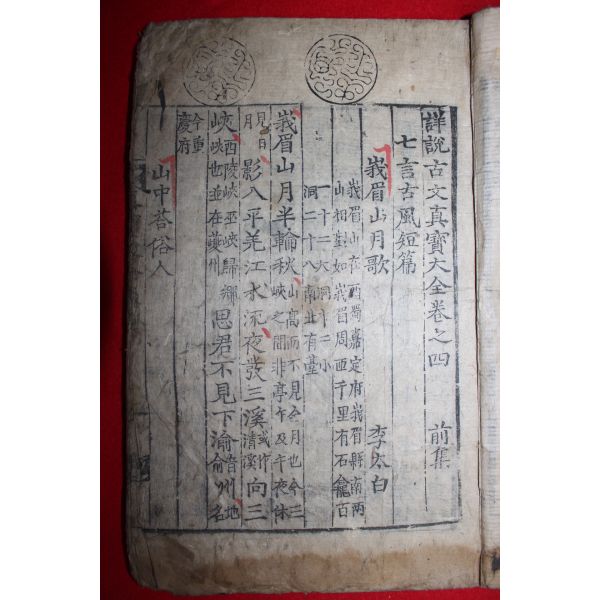 詳說古文真寶大全卷之四 前集
七言古風短篇
峩眉山月歌 李太白
峩眉山在西蜀嘉定府峩眉縣南兩
山相對如峩眉周匝千里有石龕百
一十二大洞十二小
洞二十八南北有臺
峩眉山月半輪秋 山高而不見全月也 今三
峽之間非亭午及午夜不
見日
月 影入平羌江水流夜發三溪 或作
清溪 向三
峽 西陵峽巫峽歸鄉
峽也並在夔州 思君不見下渝 音
俞 州 地
名
今重
慶府
山中答俗人